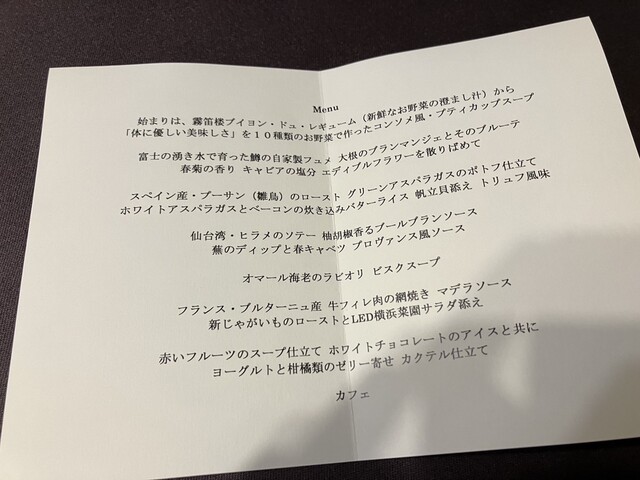 Menu
始まりは、霧笛楼ブイヨン・ドュ・レギューム（新鮮なお野菜の澄まし汁）から
「体に優しい美味しさ」を１０種類のお野菜で作ったコンソメ風・プティカップスープ
富士の湧き水で育った鱒の自家製フュメ 大根のブランマンジェとそのブルーテ
春菊の香り キャビアの塩分 エディブルフラワーを散りばめて
スペイン産・プーサン（雛鳥）のロースト グリーンアスパラガスのポトフ仕立て
ホワイトアスパラガスとベーコンの炊き込みバターライス 帆立貝添え トリュフ風味
仙台湾・ヒラメのソテー 柚胡椒香るブールブランソース
蕪のディップと春キャベツ プロヴァンス風ソース
オマール海老のラビオリ ビスクスープ
フランス・ブルターニュ産 牛フィレ肉の網焼き マデラソース
新じゃがいものローストとLED横浜菜園サラダ添え
赤いフルーツのスープ仕立て ホワイトチョコレートのアイスと共に
ヨーグルトと柑橘類のゼリー寄せ カクテル仕立て
カフェ